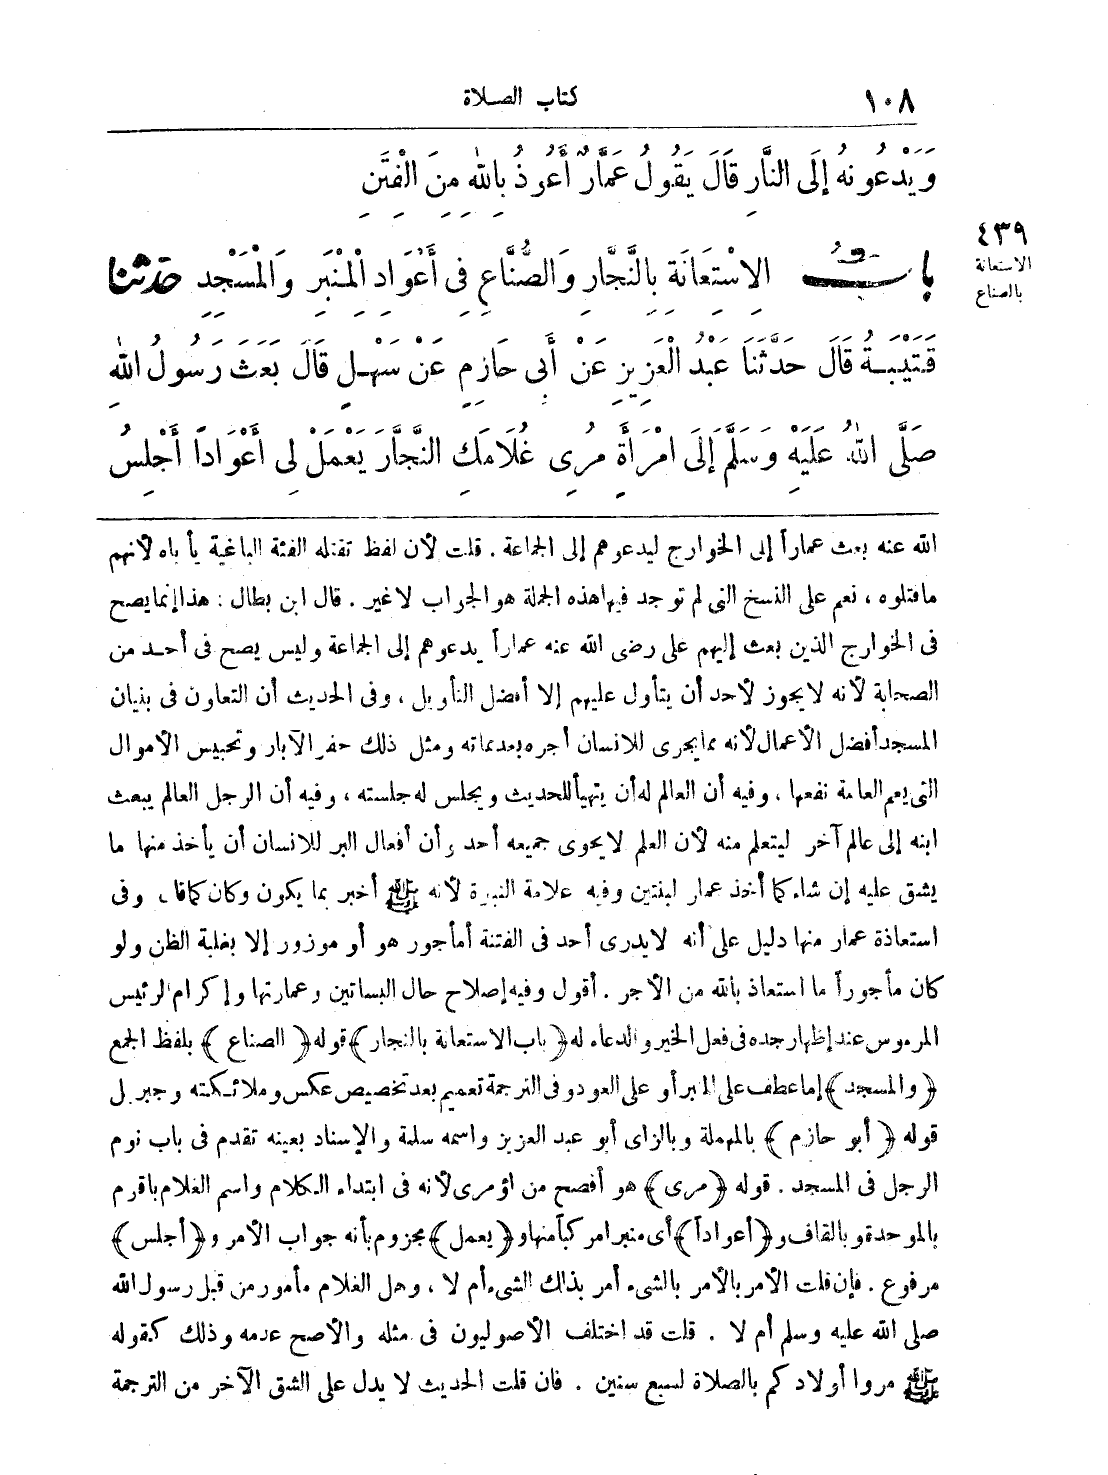 ١٠٨ كتاب الصـلاة
وَيَدْعُونَهُ إِلَى النَّارِ قَالَ يَقُولُ عَمَّارٌ أَعُوذُ بِاللهِ مِنَ الْفِتَنِ
٤٣٩
الاستعانة
بالصناع
بابُ الِاسْتِعَانَةِ بِالنَّجَّارِ وَالصُّنَّاعِ فِى أَعْوَادِ الْمِنْبَرِ وَالْمَسْجِدِ حَدَّثَنَا
قُتَيْبَةُ قَالَ حَدَّثَنَا عَبْدُ الْعَزِيزِ عَنْ أَبِى حَازِمٍ عَنْ سَهْلٍ قَالَ بَعَثَ رَسُولُ اللهِ
صَلَّى اللهُ عَلَيْهِ وَسَلَّمَ إِلَى امْرَأَةٍ مُرِى غُلَامَكِ النَّجَّارَ يَعْمَلْ لِى أَعْوَاداً أَجْلِسُ
الله عنه بعث عماراً إلى الخوارج ليدعوهم إلى الجماعة . قلت لأن لفظ تقتله الفئة الباغية يأباه لأنهم
ماقتلوه ، نعم على النسخ التى لم توجد فيها هذه الجملة هو الجواب لا غير . قال ابن بطال : هذا إنما يصح
فى الخوارج الذين بعث إليهم على رضى الله عنه عماراً يدعوهم إلى الجماعة وليس يصح فى أحـد من
الصحابة لأنه لا يجوز لأحد أن يتأول عليهم إلا أفضل التأويل ، وفى الحديث أن التعاون فى بنيان
المسجد أفضل الأعمال لأنه مما يجرى للانسان أجره بعد مماته ومثل ذلك حفر الآبار وتحبيس الأموال
التى يعم العامة نفعها ، وفيه أن العالم له أن يتهيأ للحديث ويجلس له جلسته ، وفيه أن الرجل العالم يبعث
ابنه إلى عالم آخر ليتعلم منه لأن العلم لا يحوى جميعه أحد وأن أفعال البر للانسان أن يأخذ منها ما
يشق عليه إن شاء كما أخذ عمار لبنتين وفيه علامة النبوة لأنه ﷺ أخبر بما يكون وكان كما قال وفى
استعاذة عمار منها دليل على أنه لا يدرى أحد فى الفتنة أمأجور هو أو موزور إلا بغلبة الظن ولو
كان مأجوراً ما استعاذ بالله من الأجر . أقول وفيه إصلاح حال البساتين وعمارتها وإكرام الرئيس
المرءوس عند إظهار جده فى فعل الخير والدعاء له ﴿باب الاستعانة بالنجار﴾ قوله ﴿الصناع﴾ بلفظ الجمع
﴿والمسجد﴾ إما عطف على المنبر أو على العود وفى الترجمة تعميم بعد تخصيص عكس وملائكته وجبريل
قوله ﴿أبو حازم﴾ بالمهملة وبالزاى أبو عبد العزيز واسمه سلمة والإسناد بعينه تقدم فى باب نوم
الرجل فى المسجد . قوله ﴿مرى﴾ هو أفصح من اؤمرى لأنه فى ابتداء الكلام واسم الغلام باقوم
بالموحدة وبالقاف و﴿أعواداً﴾ أى منبرا مركباً منها و﴿يعمل﴾ مجزوم بأنه جواب الأمر و﴿أجلس﴾
مرفوع . فإن قلت الأمر بالأمر بالشىء أمر بذلك الشىء أم لا ، وهل الغلام مأمور من قبل رسول الله
صلى الله عليه وسلم أم لا . قلت قد اختلف الأصوليون فى مثله والأصح عدمه وذلك كقوله
ﷺ مروا أولادكم بالصلاة لسبع سنين . فان قلت الحديث لا يدل على الشق الآخر من الترجمة